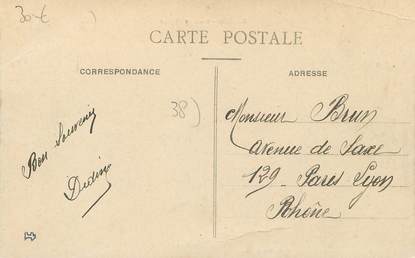 30 €
CARTE POSTALE
CORRESPONDANCE
ADRESSE
38)
Bon Souvenir
Monsieur Brun
Avenue de Saxe
129 - Lyon
Rhône